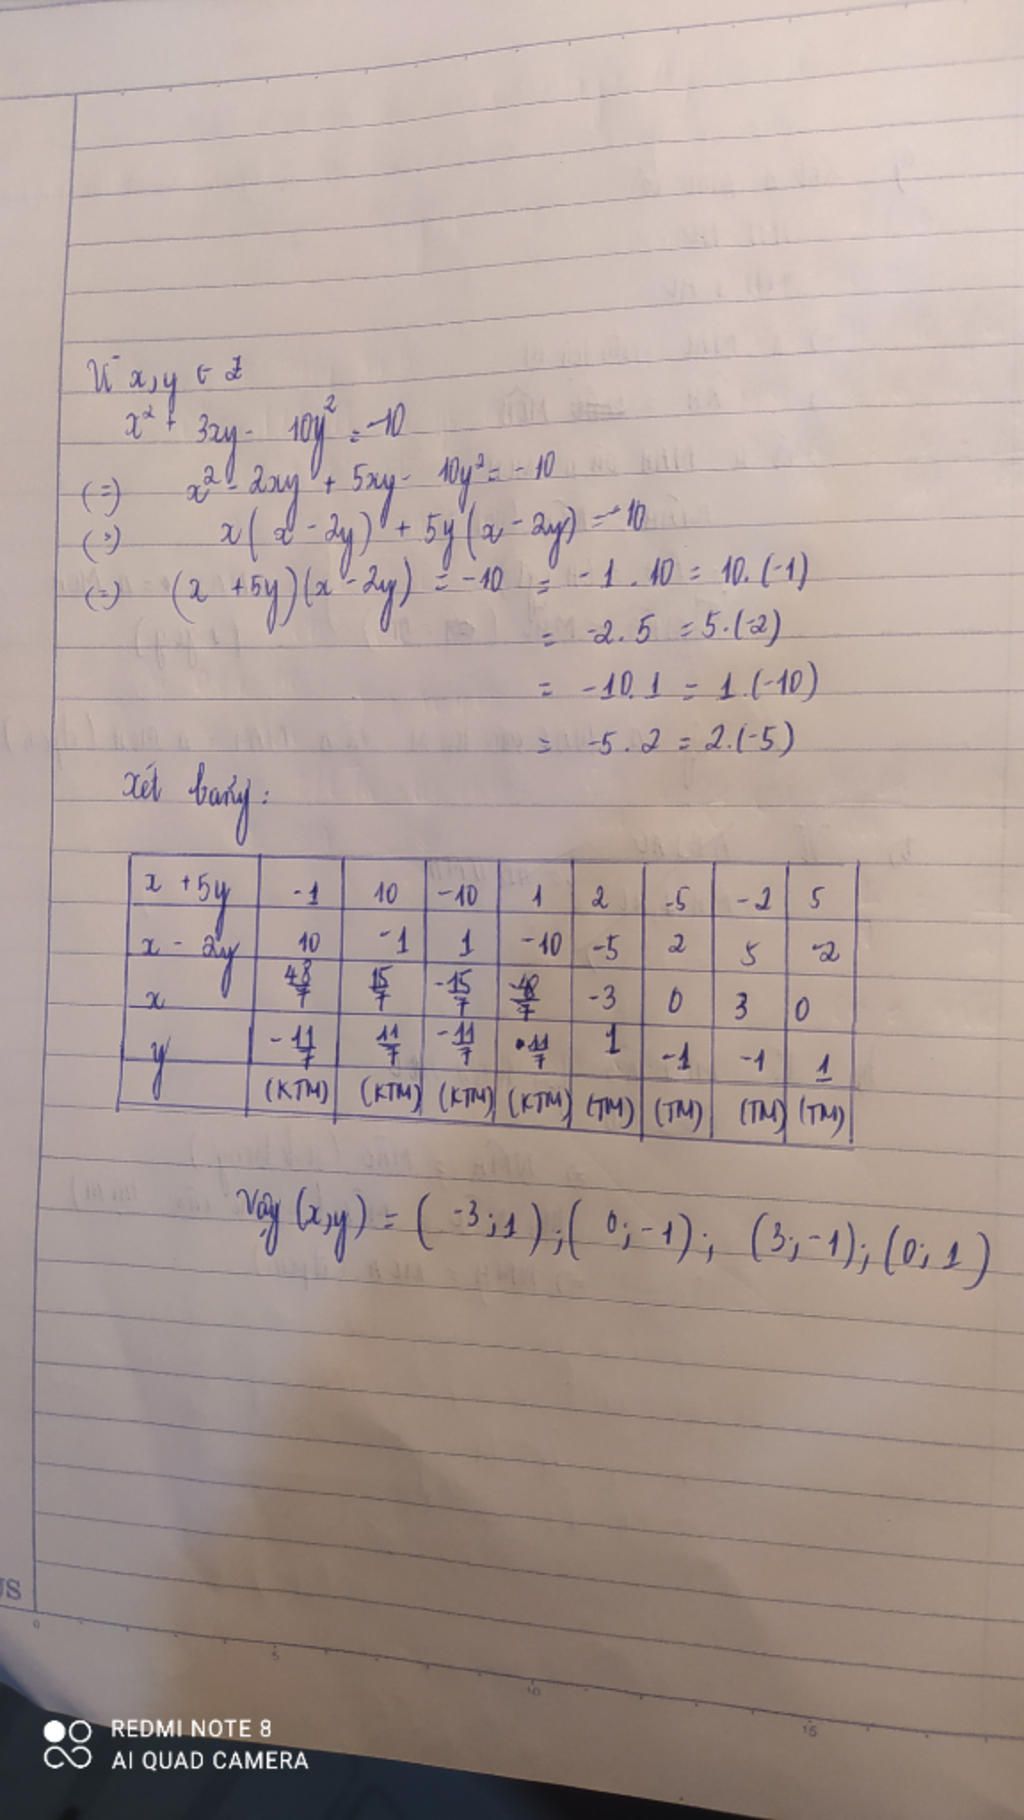 Vì x,y ∈ Z
x² + 3xy - 10y² = -10
(=) x² - 2xy + 5xy - 10y² = -10
(=) x(x - 2y) + 5y(x - 2y) = -10
(=) (x + 5y)(x - 2y) = -10 = -1 . 10 = 10. (-1)
= -2. 5 = 5. (-2)
= -10. 1 = 1. (-10)
= -5. 2 = 2. (-5)
Xét bảng:
x + 5y | -1 | 10 | -10 | 1 | 2 | -5 | -2 | 5
x - 2y | 10 | -1 | 1 | -10 | -5 | 2 | 5 | -2
x | 48/7 | 15/7 | -15/7 | -48/7 | -3 | 0 | 3 | 0
y | -11/7 | 11/7 | -11/7 | 11/7 | 1 | -1 | -1 | 1
(KTM) | (KTM) | (KTM) | (KTM) | (TM) | (TM) | (TM) | (TM)
Vậy (x,y) = (-3; 1); (0; -1); (3; -1); (0; 1)
US
0 5 10 15
REDMI NOTE 8
AI QUAD CAMERA